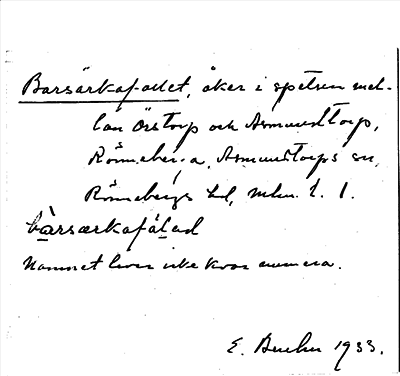 Barsärkafallet, åker i spetsen mel-
lan Örstorp och Asmundtorp,
Rönneberga, Asmundtorps sn,
Rönnebergs hd, Mlm. l. 1.
Namnet lever icke kvar numera.
E. Buchu 1933.